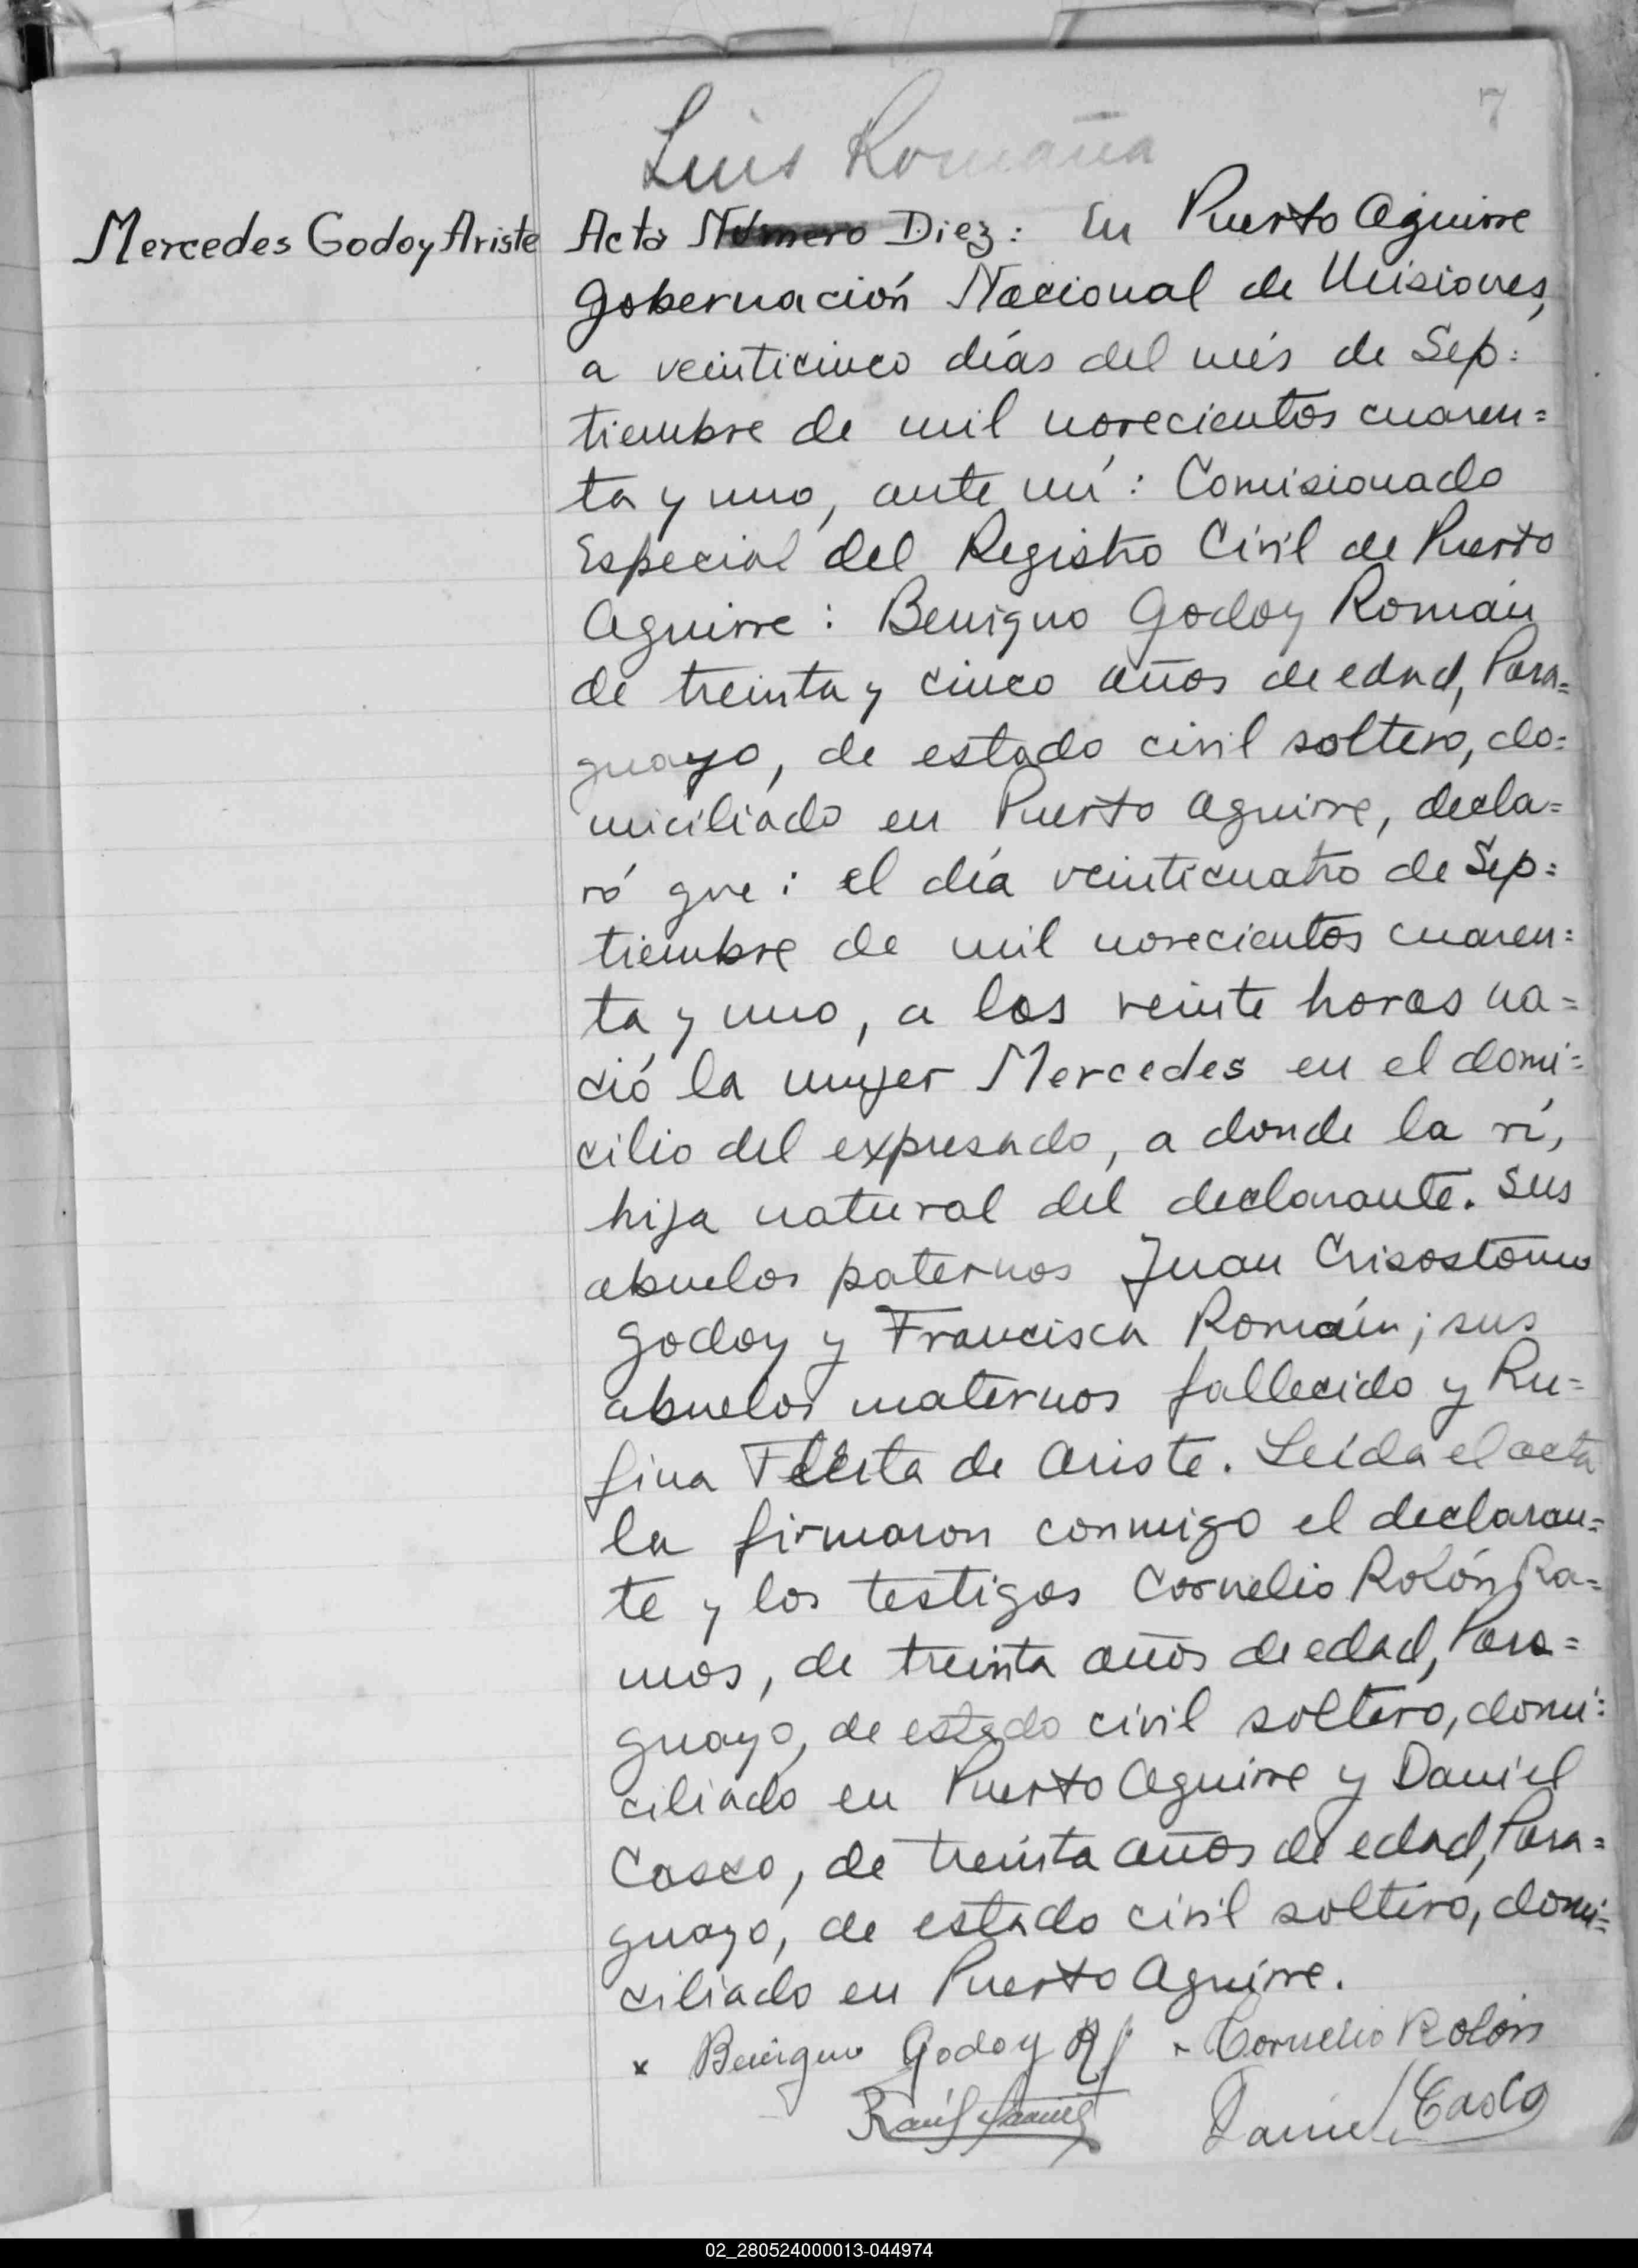 7
Luis Romaña
Mercedes Godoy Ariste
Acta Número Diez: En Puerto Aguirre
Gobernación Nacional de Misiones,
a veinticinco días del més de Sep=
tiembre de mil novecientos cuaren=
ta y uno, ante mí: Comisionado
Especial del Registro Civil de Puerto
Aguirre: Benigno Godoy Román
de treinta y cinco años de edad, Para=
guayo, de estado civil soltero, do=
miciliado en Puerto Aguirre, decla=
ró que: el día veinticuatro de Sep=
tiembre de mil novecientos cuaren=
ta y uno, a las veinte horas na=
ció la mujer Mercedes en el domi=
cilio del expresado, a donde la ví,
hija natural del declarante. Sus
abuelos paternos Juan Crisostomo
Godoy y Francisca Román; sus
abuelos maternos fallecido y Ru=
fina de Ariste. Leída el acta
la firmaron conmigo el declaran=
te y los testigos Cornelio Rolón Ra=
mos, de treinta años de edad, Para=
guayo, de estado civil soltero, domi=
ciliado en Puerto Aguirre y Daniel
Casco, de treinta años de edad, Para=
guayo, de estado civil soltero, domi=
ciliado en Puerto Aguirre.
x Benigno Godoy R x Cornelio Rolón
Raúl Daniel Casco
02_280524000013-044974